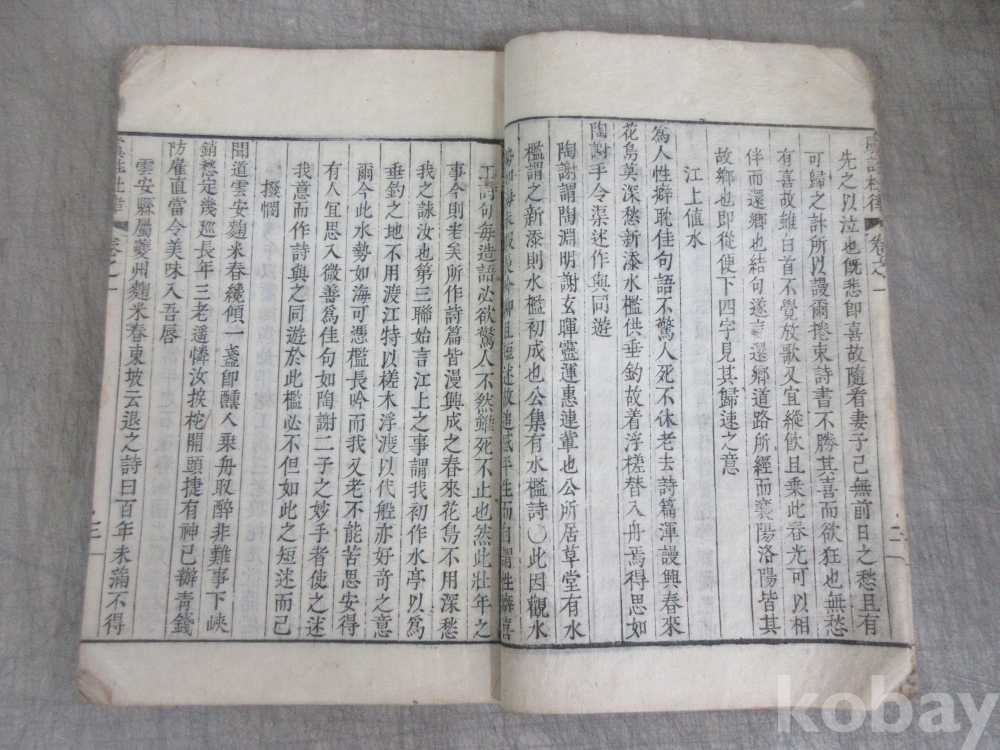 虞註杜律 卷之一 二
先之以泣也旣悲卽喜故隨看妻子已無前日之愁且有
可歸之計所以謾爾捲束詩書不勝其喜而欲狂也無愁
有喜故雖白首不覺放歌又宜縱飲且乘此春光可以相
伴而還鄉也結句遂言還鄉道路所經而襄陽洛陽皆其
故鄉也卽從便下四字見其歸速之意
江上值水
爲人性癖耽佳句語不驚人死不休老去詩篇渾謾興春來
花鳥莫深愁新添水檻供垂釣故着浮槎替入舟焉得思如
陶謝手令渠述作與同遊
陶謝謂陶淵明謝玄暉靈運惠連輩也公所居草堂有水
檻謂之新添則水檻初成也公集有水檻詩○此因觀水
勢如海欲長吟却且短述故追感平生而自謂性癖喜
工詩句每造語必欲驚人不然雖死不止也然此壯年之
事今則老矣所作詩篇皆漫興成之春來花鳥不用深愁
我之詠汝也第三聯始言江上之事謂我初作水亭以爲
垂釣之地不用渡江特以槎木浮渡以代船亦好奇之意
爾今此水勢如海可憑檻長吟而我又老不能苦思安得
有人宜思入微善爲佳句如陶謝二子之妙手者使之述
我意而作詩與之同遊於此檻必不但如此之短述而已
撥憫
聞道雲安麴米春纔傾一盞卽醺人乘舟取醉非難事下峽
銷愁定幾巡長年三老遙憐汝捩柁開頭捷有神已辦青錢
防雇直當令美味入吾唇
雲安縣屬夔州麴米春東坡云退之詩曰百年未滿不得
虞註杜律 卷之一 三
kobay